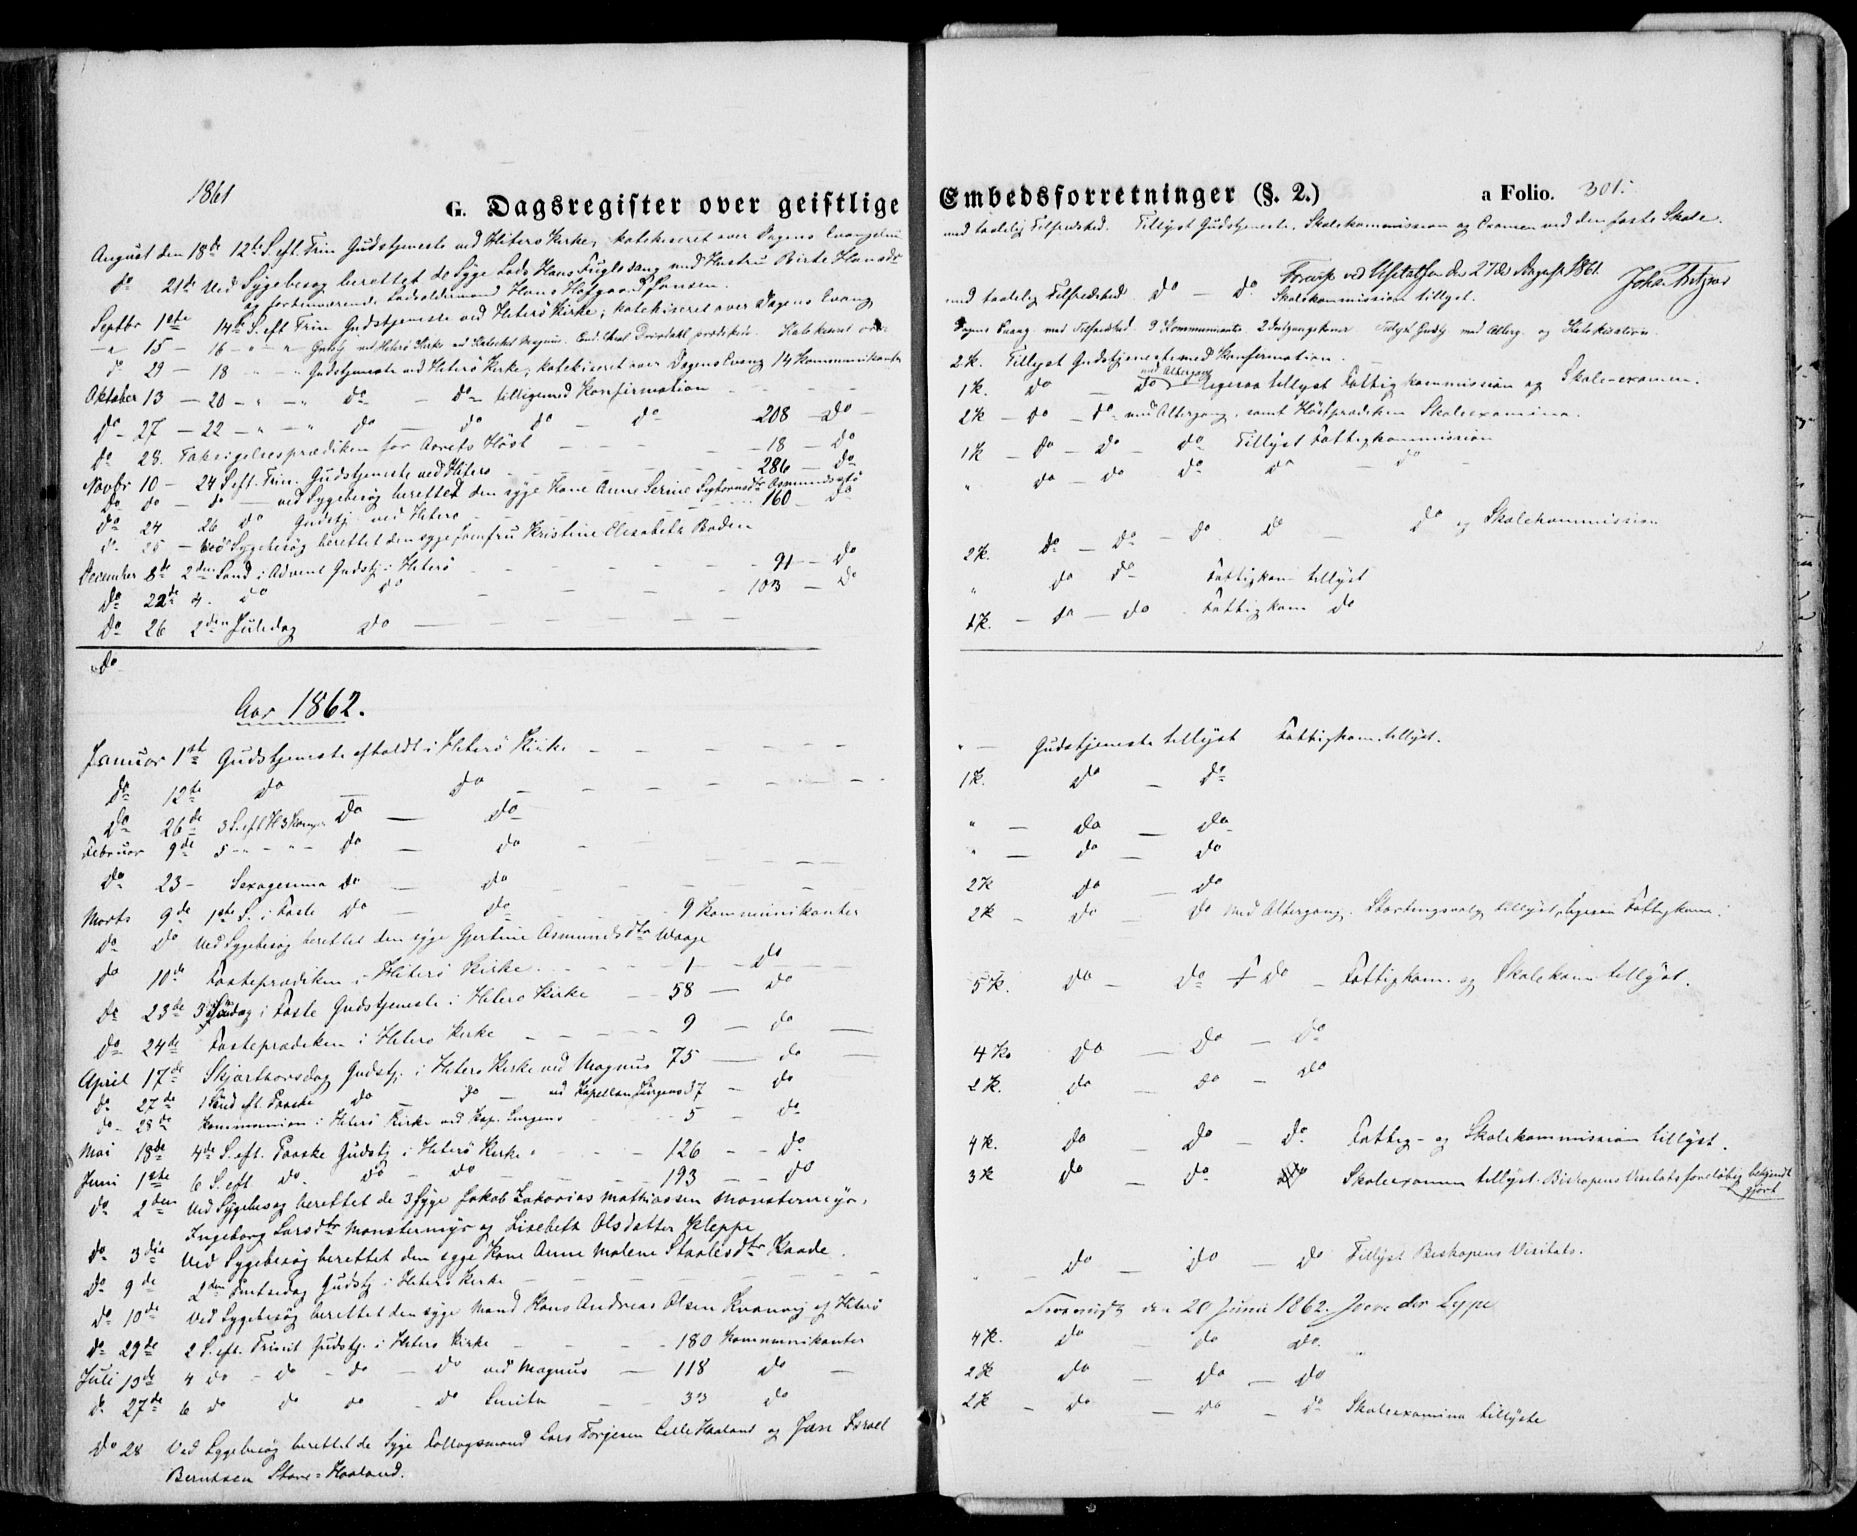 1861
G. Dagsregister over geistlige
August den 18de 12te S. eft. Trin Gudstjeneste ved Hiterø Kirke, katekiseret over Dagens Evangeliu
do 21de Ved Sygebesøg berettet de Syge Lods Hans Fuglevang med Hustru Birte Hansdr
og fortumerende Lodsoldermand Hans Hofgaard Hansen.
Septbr 1ste 14de S. eft Trin Gudstjeneste ved Hiterø Kirke, katekiseret over Dagens Evang
15 — 16 Gudstj ved Hiterø Kirke ved Kateket Magnus. Cand. prædiken. Katekiseret over
do 29 — 18 Gudstjeneste ved Hiterø Kirke, katekiseret over Dagens Evang 14 Kommunikanter
Oktober 13 — 20 do — do tilligemed Konfirmation
do 27 — 22 do do do do 208 — do
do 28. Taksigelsesprædiken for Aarets Høst 18 — do
Novbr 10 — 24 S. eft. Trin. Gudstjeneste ved Hiterø 286 — do
do do — do — ved Sygebesøg berettet den syge Kone Anne Serine
do 24 26 do Gudstj. ved Hiterø 160 do
do 25 — Ved Sygebesøg berettet den syge Jomfru Kristine Elisabeth Boden
December 8de 2den Sønd i Advent Gudstj. i Hiterø 91 — do
do 22de 4. do do 103 — do
do 26 2den Juledag do
do
Aar 1862.
Januar 1ste Gudstjeneste afholdt i Hiterø Kirke
do 12te do — do
do 26de 3 S. eft H 3 Konger do — do
Februar 9de 5 do — do
do 23 — Sexagesima do — do
Marts 9de 1ste S. i Faste do — do 9 Kommunikanter
do do Ved Sygebesøg berettet den syge Gjertine Asmundsdtr Waage
do 10de Fasteprædiken i Hiterø Kirke. 1 — do
do 23de 3 Søndag i Faste Gudstjeneste i Hiterø Kirke 58 — do
do 24de Fasteprædiken i Hiterø Kirke 9 — do
April 17de Skjærthorsdag Gudstj. i Hiterø Kirke ved Magnus 75 — do
do 27de 1 Sønd eft. Paaske do — do — ved Kapellan Jurgens 7 — do
do 28de Kommunion i Hiterø Kirke ved Kap. Jurgens 5 — do
Mai 18de 4de S. eft. Paaske Gudstj i Hiterø Kirke 126 — do
Juni 1ste 6 S. eft do. do — do 193 — do
do 2den Ved Sygebesøg berettet de 3 Syge Jakob Zakarias Mathiassen Monstermyr,
Ingeborg Larsdtr Monstermyr og Lisebeth Olsdatter Kleppe
do 3die Ved Sygebesøg berettet den syge Kone Anne Malene Staalesdtr Raade.
do 9de 2den Pintsedag Gudstj i Hiterø Kirke
do 10de Ved Sygebesøg berettet den syge Mand Hans Andreas Olsen Kvanvig af Hiterø
do 29de 2 S. eft. Trinit Gudstj. i Hiterø Kirke 180 Kommunikanter
Juli 13de 4 do — do — do — do ved Magnus — 118 do
do 27de 6 do do do — do Smith 33 do
do 28 Ved Sygebesøg berettet de Syge Fattigsmand Lars Torjesen Lille Haaland og Jan Israel
Berntsen Store-Haaland.
Embedsforretninger (§. 2.)
a Folio. 301.
med taalelig Tilfredshed. Tillyst Gudstjeneste, Skolekommission og Examen ved den faste Skole.
ved Visitatsen den 27de August 1861.
med taalelig Tilfredshed. do — do. Skolekommission tillyst.
Dagens Evang. med Tilfredshed. 9 Kommunikanter 2 Tillyst Gudstj med Alterg. og Katekisation
2 K. Tillyst Gudstjeneste med Konfirmation.
1 K. do — do med Altergang ligesaa tillyst Fattigkommission og Skole-examen.
2 K — do — do — med Altergang, samt Høstprædiken Skoleexamina.
1 K — do — do do Tillyst Fattigkommission
" do — do do do — do
2 K. do — do — do do — do og Skolekommission
" do do Fattigkom tillyst
1 K. — do — do Fattigkom do
" — Gudstjeneste tillyst Fattigkom. tillyst.
1 K. do — do
" — do — do
" — do — do
2 K do — do
2 K — do — do med Altergang. Stortingsvalg tillyst, ligesaa Fattigkom.
5 K. do — do do — Fattigkom. og Skolekom tillyst.
4 K. do — do — do
2 K. do — do — do
4 K. do do — do Fattig- og Skolekommission tillyst.
3 K do do. Skoleexamen tillyst. Bispens Visitats foreløbig bekjendt
gjort
do — do — do Tillyst Biskopens Visitats.
den 20 Juni 1862. J von der Lippe
4 K. do — do do.
2 K do — do — do
2 K — do — do — do Skoleexamina tillyste